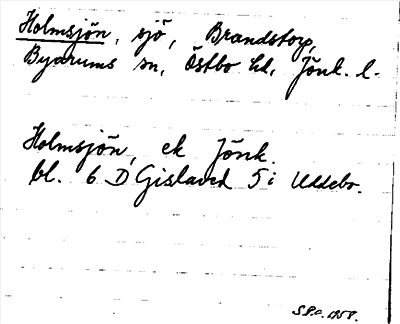 Holmsjön, sjö, Brandstorp,
Byarums sn, Östbo hd, Jönk. l.
Holmsjön, ek Jönk.
bl. 6 D Gislaved 5 i Uddebo.
1958.